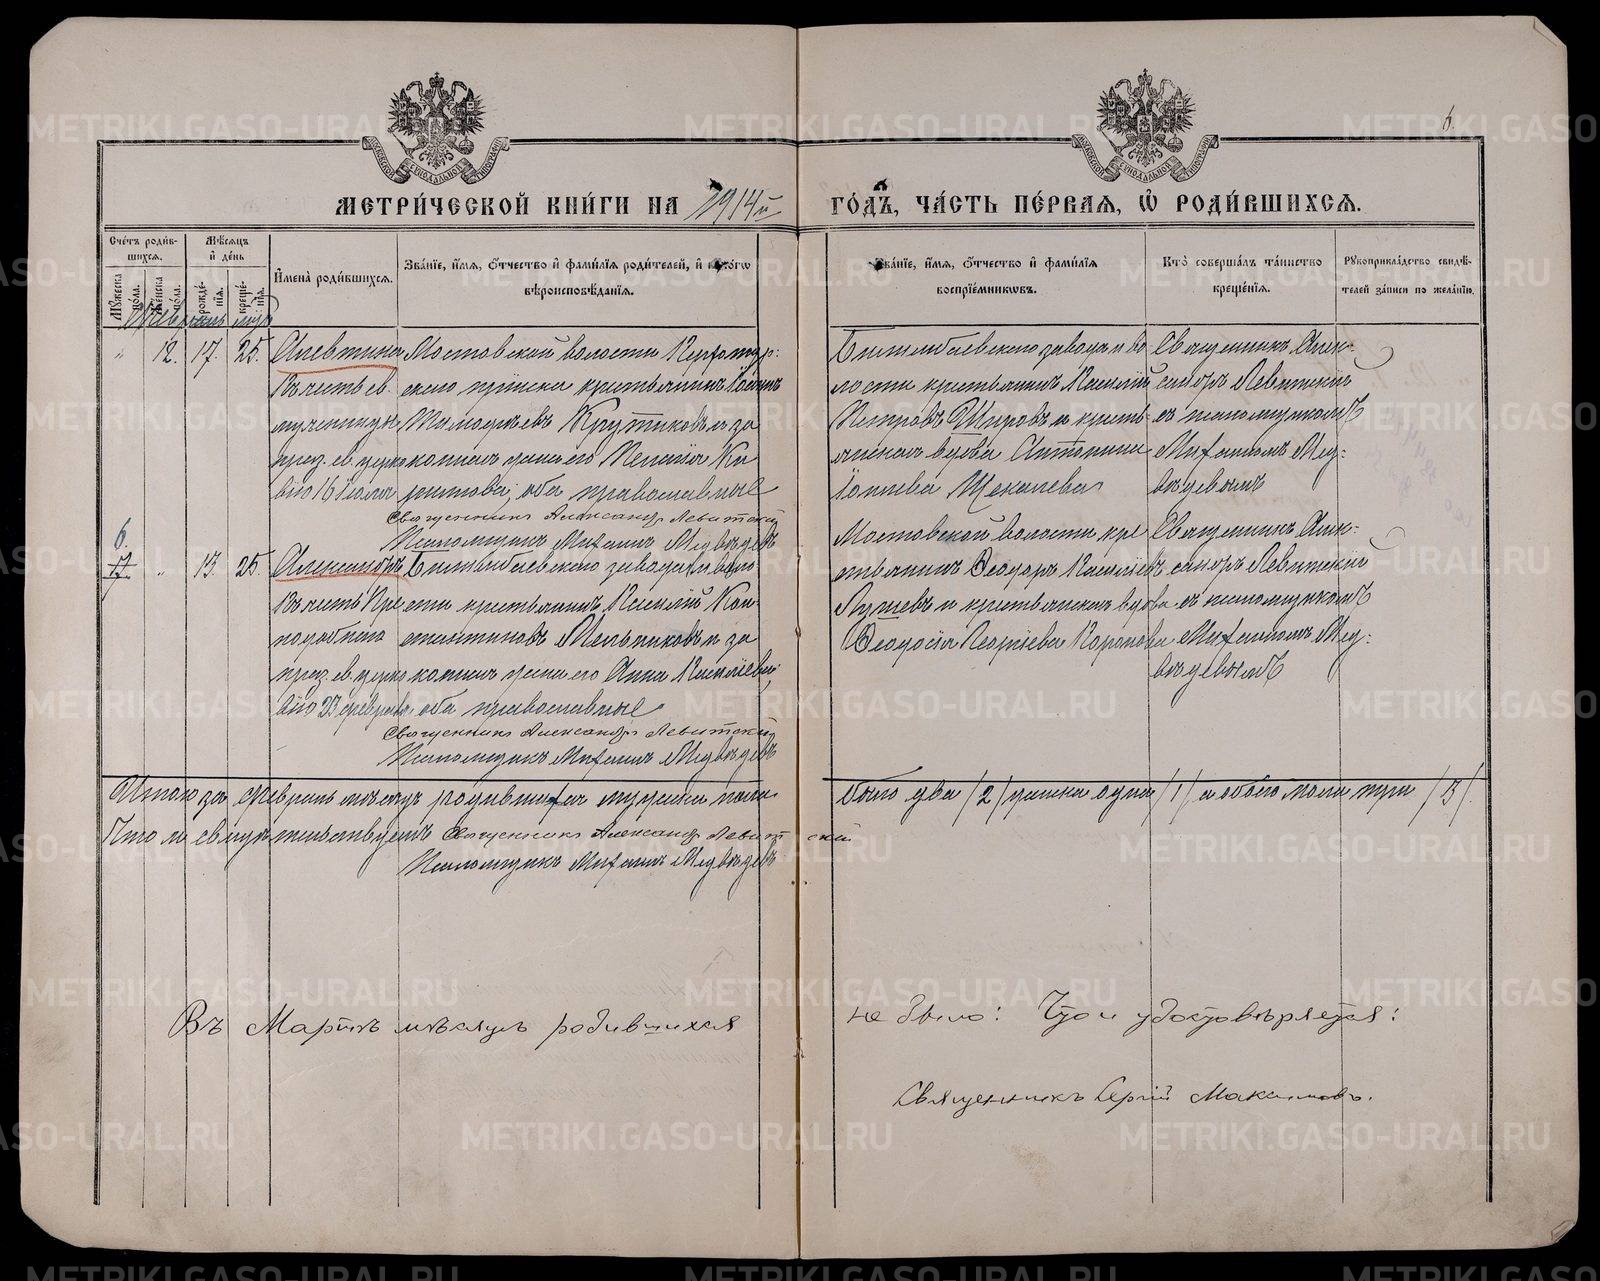 МЕТРИ́ЧЕСКОЙ КНИ́ГИ НА 1914й ГО́ДЪ, ЧА́СТЬ ПЕ́РВАЯ, Ѽ РОДИ́ВШИХСЯ.
6.
Сче́тъ роди́вшихся.
Мужеска по́ла.
Же́нска по́ла.
Мѣ́сяцъ и҆ де́нь
рожде́нїя.
креще́нїя.
И҆мена̀ роди́вшихся.
Зва́нїе, и҆́мя, ѻ҆́тчество и҆ фами́лїя роди́телей, и҆ како́гѡ
вѣроисповѣ́данїя.
Зва́нїе, и҆́мя, ѻ҆́тчество и҆ фами́лїя
воспрїе́мникѡвъ.
Кто̀ соверша́лъ та́инство
креще́нїя.
Рукоприкла́дство свидѣ́-
телей за́писи по жела́нїю.
Февраль мѣс.
" 12. 17. 25. Алевтина Мостовской волости
въ честь св. скаго прїиска крестьянинъ
мученицы Тимофеевъ Крутиковъ и за
праз. св. церко конная жена его Пелагія
вію 16 Іюля оба православные
Священникъ Александръ Левитскій
Псаломщикъ Михаилъ Медвѣдевъ
Билимбаевскаго завода и во
лости крестьянинъ Василій
Петровъ Шировъ и кресть
янская вдова Антонина
Щекалева
Священникъ Алек-
сандръ Левитскій
съ псаломщикомъ
Михаиломъ Мед-
вѣдевымъ
6.
17 " 13. 25. Александръ Билимбаевскаго завода и воло
въ честь Пре сти крестьянинъ Василій Кон
подобнаго стантиновъ Мельниковъ и за
праз. св. церко конная жена его Анна Васильева,
вію 23 февраля оба православные
Священникъ Александръ Левитскій
Псаломщикъ Михаилъ Медвѣдевъ
Мостовской волости кре
стьянинъ Ѳеодоръ Васильевъ
Лушевъ и крестьянская вдова
Ѳеодосія Георгіева
Священникъ Алек-
сандръ Левитскій
съ псаломщикомъ
Михаиломъ Мед-
вѣдевымъ
Итого за Февраль мѣсяцъ родившихся мужска пола было два /2/ женска одна /1/ а обоего пола три /3/.
Что и свидѣтельствуетъ Священникъ Александръ Левитскій
Псаломщикъ Михаилъ Медвѣдевъ
Въ Мартѣ мѣсяцѣ родившихся не было: Что и удостовѣряется:
Священникъ Сергій Максимовъ.
METRIKI.GASO-URAL.RU